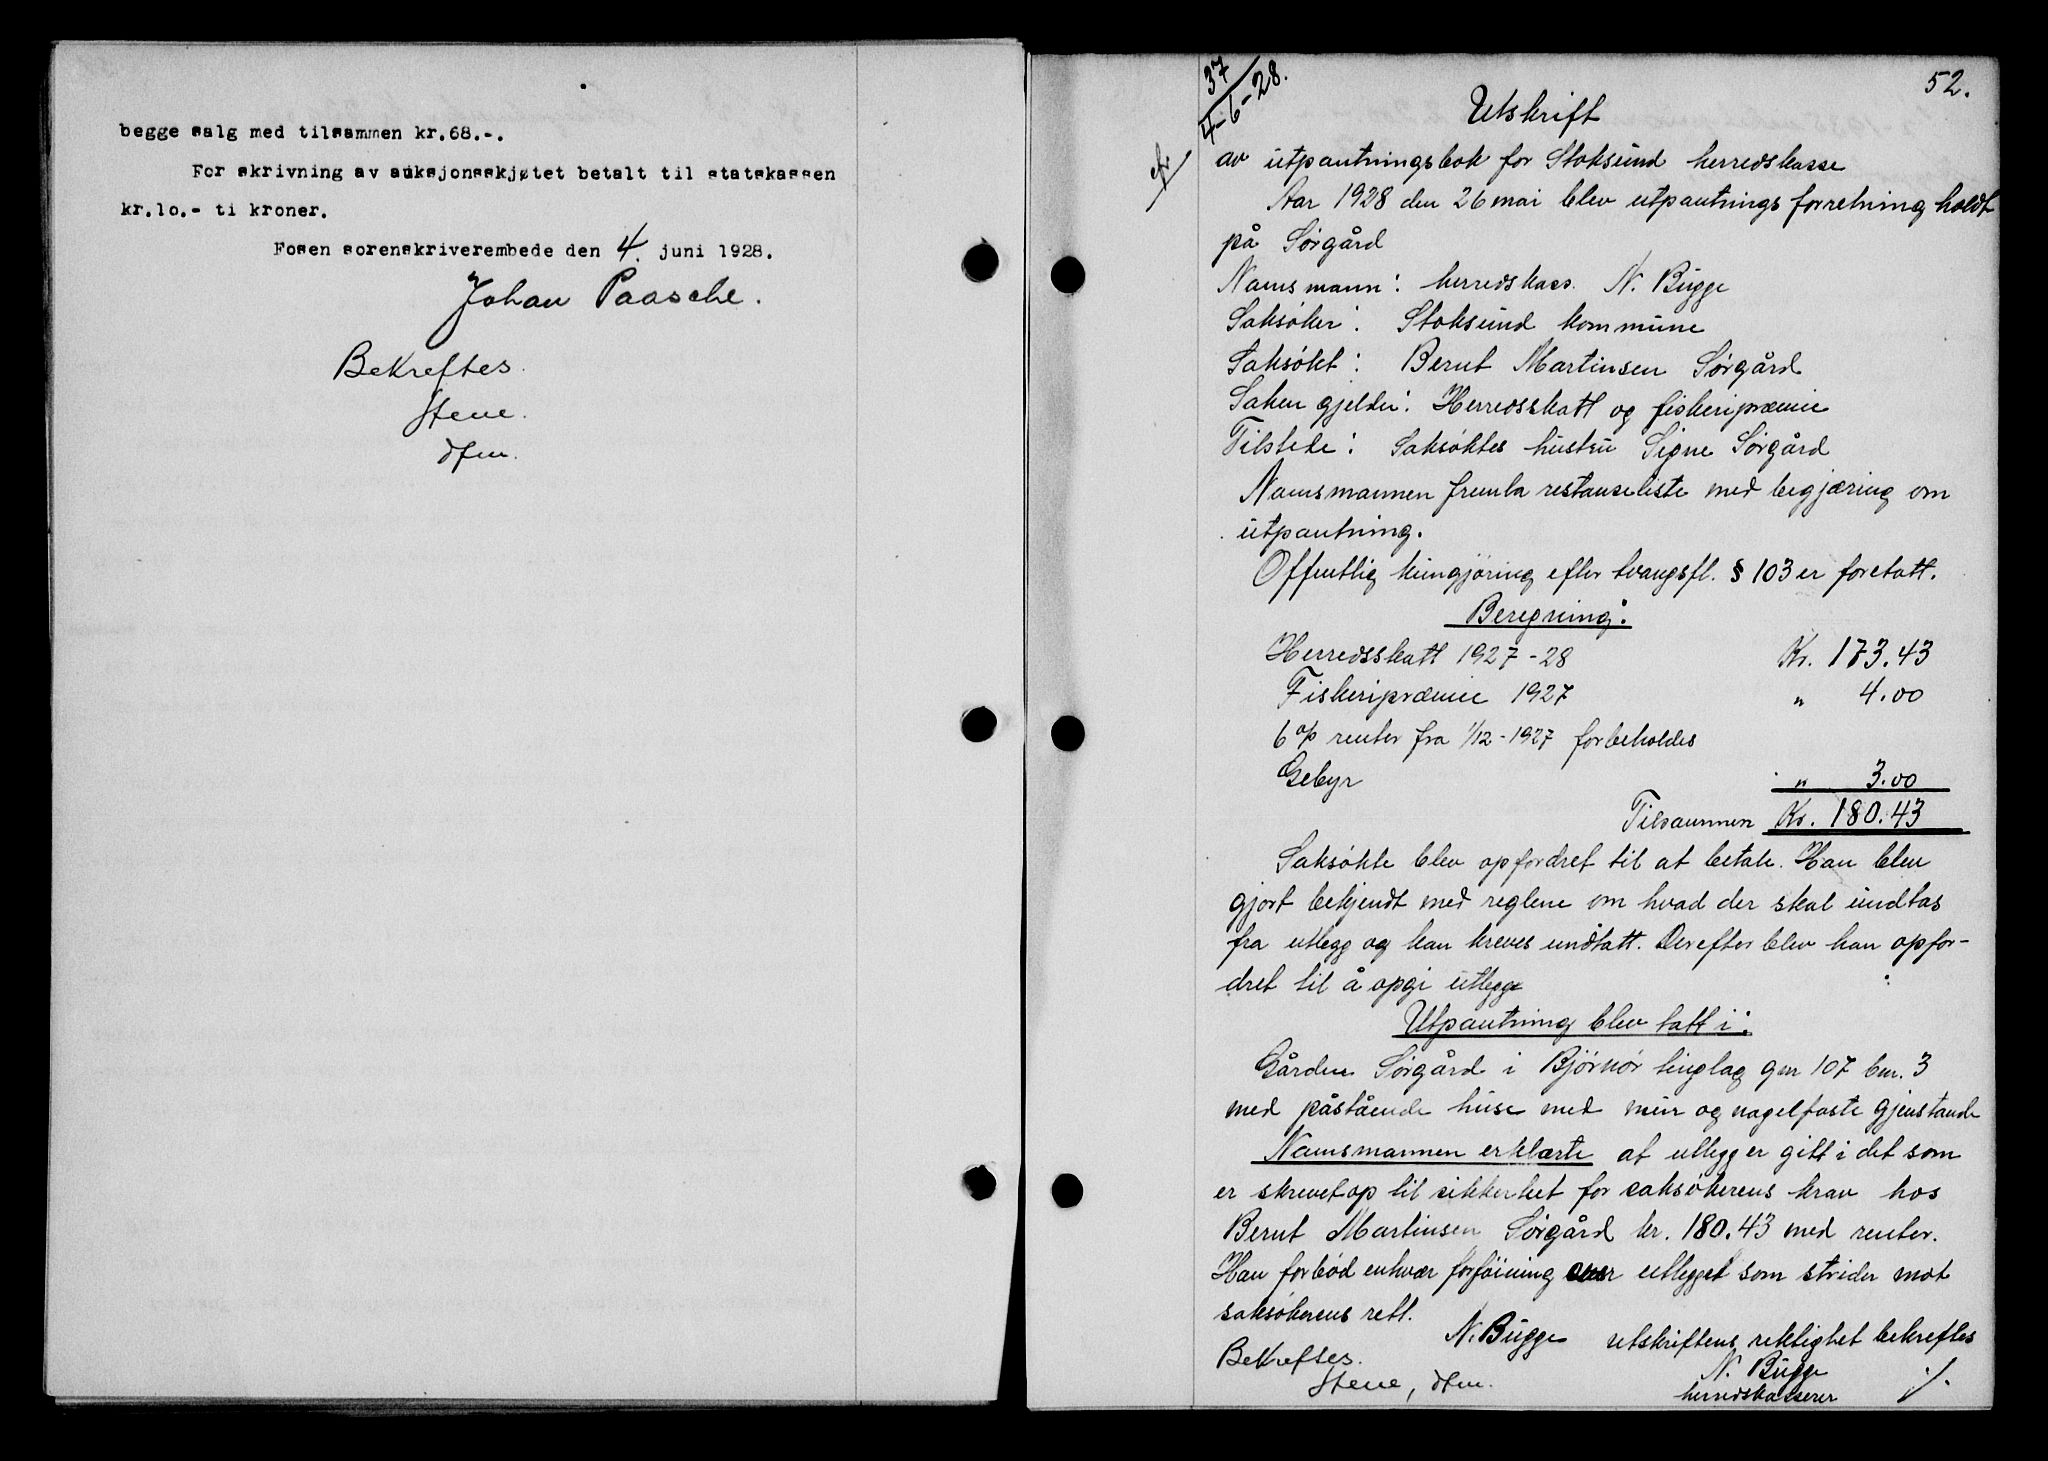 begge salg med tilsammen kr.68.-.
For skrivning av auksjonsskjøtet betalt til statskassen
kr.10.- ti kroner.
Fosen sorenskriverembede den 4. juni 1928.
Johan Paasche.
Bekreftes.
Stene.
dfm.
52.
37
4-6-28.
Utskrift
av utpantningsbok for Stoksund herredskasse
Aar 1928 den 26 mai blev utpantnings forretning holdt
på Sørgård
Namsmann: herredskass. N. Bugge
Saksøker: Stoksund kommune
Saksøkt: Bernt Martinsen Sørgård
Saken gjelder: Herredsskatt og fiskeripræmie
Tilstede: Saksøktes hustru Signe Sørgård
Namsmannen fremla restanseliste med begjæring om
utpantning.
Offentlig kungjøring efter tvangsfl. § 103 er foretatt.
Beregning:
Herredsskatt 1927-28 Kr. 173.43
Fiskeripræmie 1927 " 4.00
6 % renter fra 1/12-1927 forbeholdes
Gebyr " 3.00
Tilsammen Kr. 180.43
Saksøkte blev opfordret til at betale. Han blev
gjort bekjendt med reglene om hvad der skal undtas
fra utlegg og kan kreves undtatt. Derefter blev han opfor-
dret til å opgi utlegg
Utpantning blev tatt i:
Gården Sørgård i Bjørnør tinglag gnr 107 bnr. 3
med påstående huse med mur og nagelfaste gjenstande
Namsmannen erklærte at utlegg er gitt i det som
er skrevet op til sikkerhet for saksøkerens krav hos
Bernt Martinsen Sørgård kr. 180.43 med renter.
Han forbød enhver forføining over utlegget som strider mot
saksøkerens rett.
N. Bugge Utskriftens riktighet bekreftes
Bekreftes. N. Bugge
Stene, dfm. herredskasserer ./.